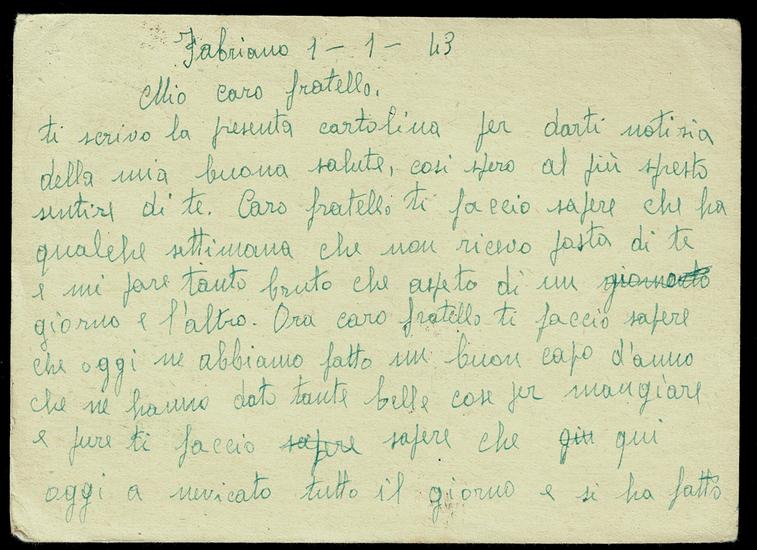 Fabriano 1 - 1 - 43
Mio caro fratello.
ti scrivo la presenta cartolina per darti notisia
della mia buona salute, cosi spero al più spesto
sentire di te. Caro fratello ti faccio sapere che ha
qualche settimana che non ricevo posta di te
e mi pare tanto bruto che aspeto di un giornonto
giorno e l'altro. Ora caro fratello ti faccio sapere
che oggi ne abbiamo fatto un buon capo d'anno
che ne hanno dato tante belle cose per mangiare
e pure ti faccio sapere sapere che giu qui
oggi a nevicato tutto il giorno e si ha fatto